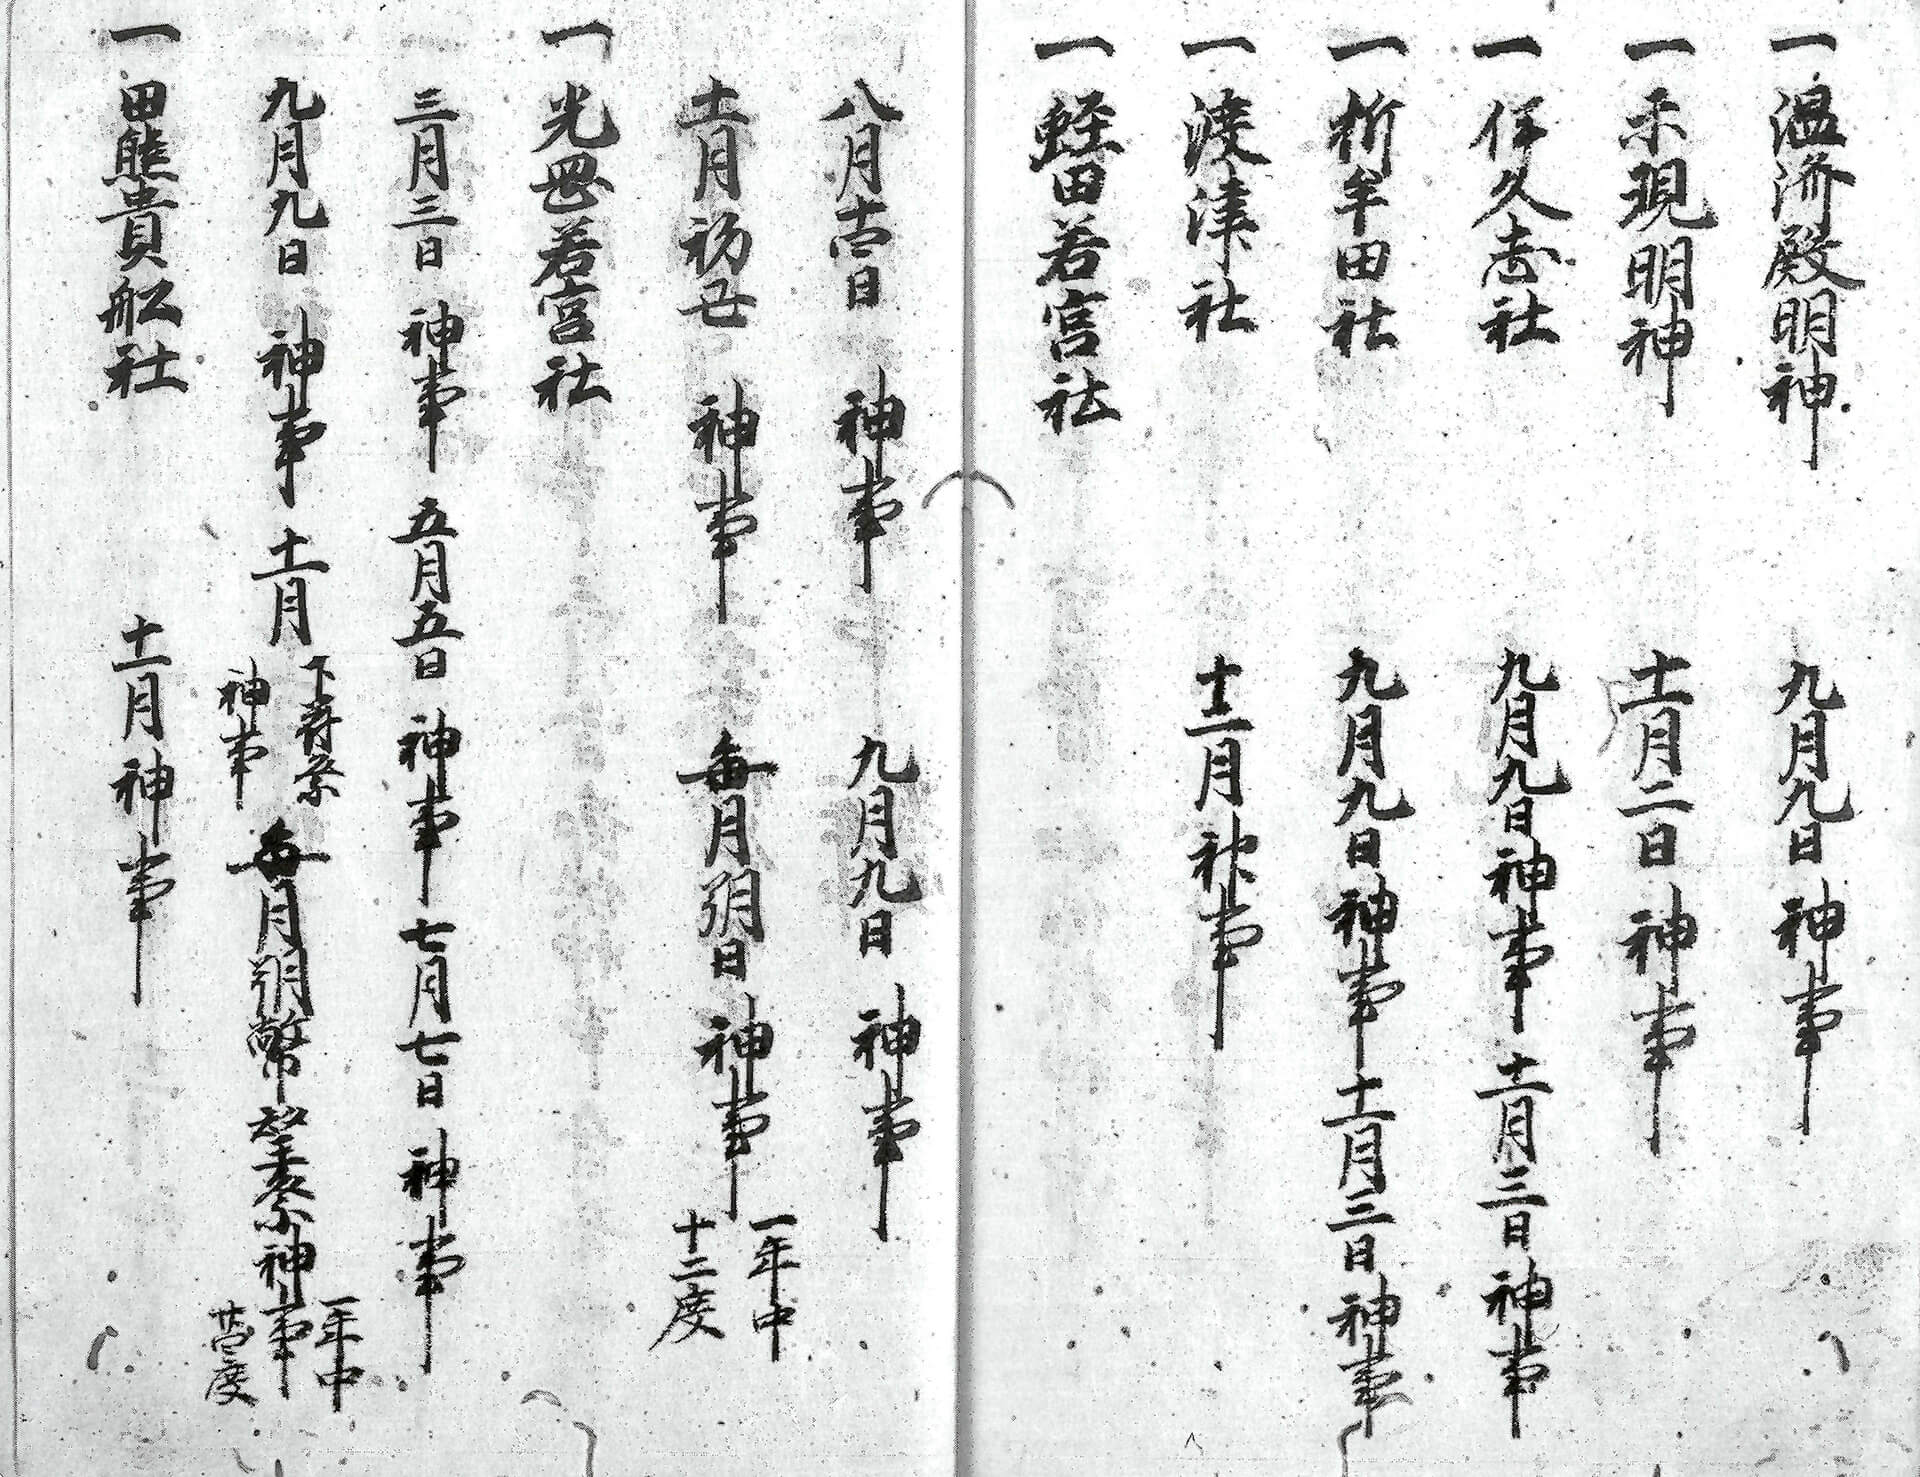 一温済殿明神　九月九日神事
一示現明神　十一月二日神事
一伊久志社　九月九日神事　十一月三日神事
一折牟田社　九月九日神事　十一月三日神事
一渡津社　十二月神事
一蛭田若宮社
八月十五日神事　九月九日神事
十一月初丑神事　毎月朔日神事　一年中
十二度
一光岡若宮社
三月三日神事　五月五日神事　七月七日神事
九月九日神事　十一月
神事　毎月朔幣
神事　一年中
度
一田熊貴船社　十一月神事